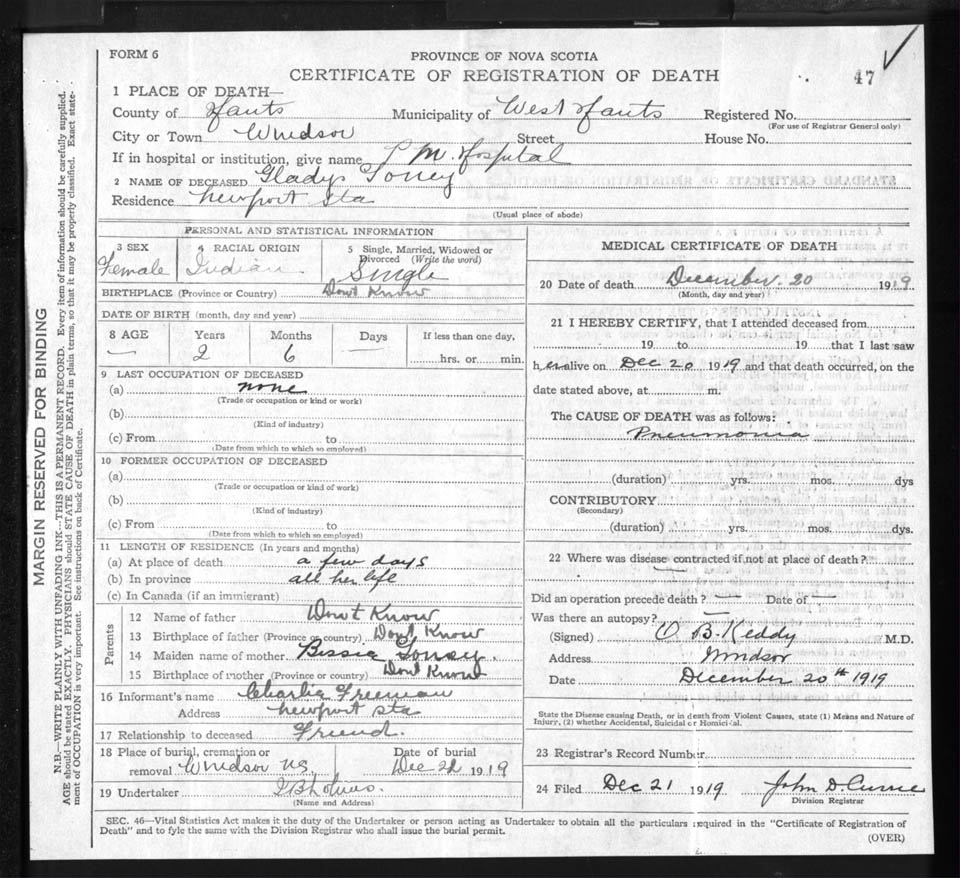 FORM 6
PROVINCE OF NOVA SCOTIA
CERTIFICATE OF REGISTRATION OF DEATH
47
1 PLACE OF DEATH—
County of Hants Municipality of West Hants Registered No.
(For use of Registrar General only)
City or Town Windsor Street House No.
If in hospital or institution, give name P M. Hospital
2 NAME OF DECEASED Gladys Toney
Residence Newport Sta
(Usual place of abode)
PERSONAL AND STATISTICAL INFORMATION
3 SEX Female
4 RACIAL ORIGIN Indian
5 Single, Married, Widowed or Divorced (Write the word) Single
BIRTHPLACE (Province or Country) Don't Know
DATE OF BIRTH (month, day and year)
8 AGE — Years 2 Months 6 Days — If less than one day, hrs. or min.
9 LAST OCCUPATION OF DECEASED
(a) none
(Trade or occupation or kind or work)
(b)
(Kind of industry)
(c) From to
(Date from which to which so employed)
10 FORMER OCCUPATION OF DECEASED
(a)
(Trade or occupation or kind of work)
(b)
(Kind of industry)
(c) From to
(Date from which to which so employed)
11 LENGTH OF RESIDENCE (In years and months)
(a) At place of death a few days
(b) In province all her life
(c) In Canada (if an immigrant)
Parents
12 Name of father Don't Know
13 Birthplace of father (Province or country) Don't Know
14 Maiden name of mother Bessie Toney.
15 Birthplace of mother (Province or country) Don't Know
16 Informant's name Charlie Freeman
Address Newport Sta
17 Relationship to deceased Friend.
18 Place of burial, cremation or removal Windsor NS Date of burial Dec 22 1919
19 Undertaker
(Name and Address)
MEDICAL CERTIFICATE OF DEATH
20 Date of death December. 20 1919
(Month, day and year)
21 I HEREBY CERTIFY, that I attended deceased from
19 to 19 that I last saw
her alive on Dec 20 1919 and that death occurred, on the
date stated above, at m.
The CAUSE OF DEATH was as follows:
Pneumonia
(duration) yrs. mos. dys
CONTRIBUTORY
(Secondary)
(duration) yrs. mos. dys.
22 Where was disease contracted if not at place of death?
—
Did an operation precede death? — Date of —
Was there an autopsy? —
(Signed) O. B. Keddy M.D.
Address Windsor
Date December 20th 1919
State the Disease causing Death, or in death from Violent Causes, state (1) Means and Nature of
Injury, (2) whether Accidental, Suicidal or Homicidal.
23 Registrar's Record Number
24 Filed Dec 21 1919 John D. Currie
Division Registrar
SEC. 46—Vital Statistics Act makes it the duty of the Undertaker or person acting as Undertaker to obtain all the particulars required in the "Certificate of Registration of
Death" and to fyle the same with the Division Registrar who shall issue the burial permit.
(OVER)
MARGIN RESERVED FOR BINDING
N.B.—WRITE PLAINLY WITH UNFADING INK—THIS IS A PERMANENT RECORD. Every item of information should be carefully supplied.
AGE should be stated EXACTLY. PHYSICIANS should STATE CAUSE OF DEATH in plain terms, so that it may be properly classified. Exact state-
ment of OCCUPATION is very important. See instructions on back of Certificate.